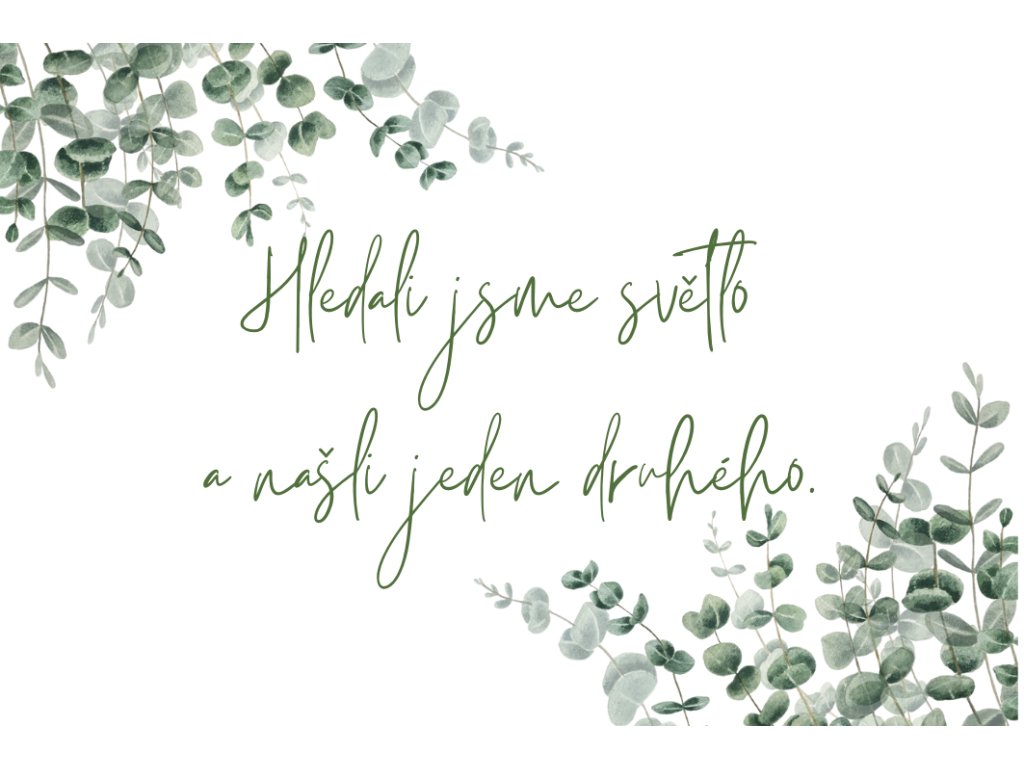 Hledali jsme světlo
a našli jeden druhého.